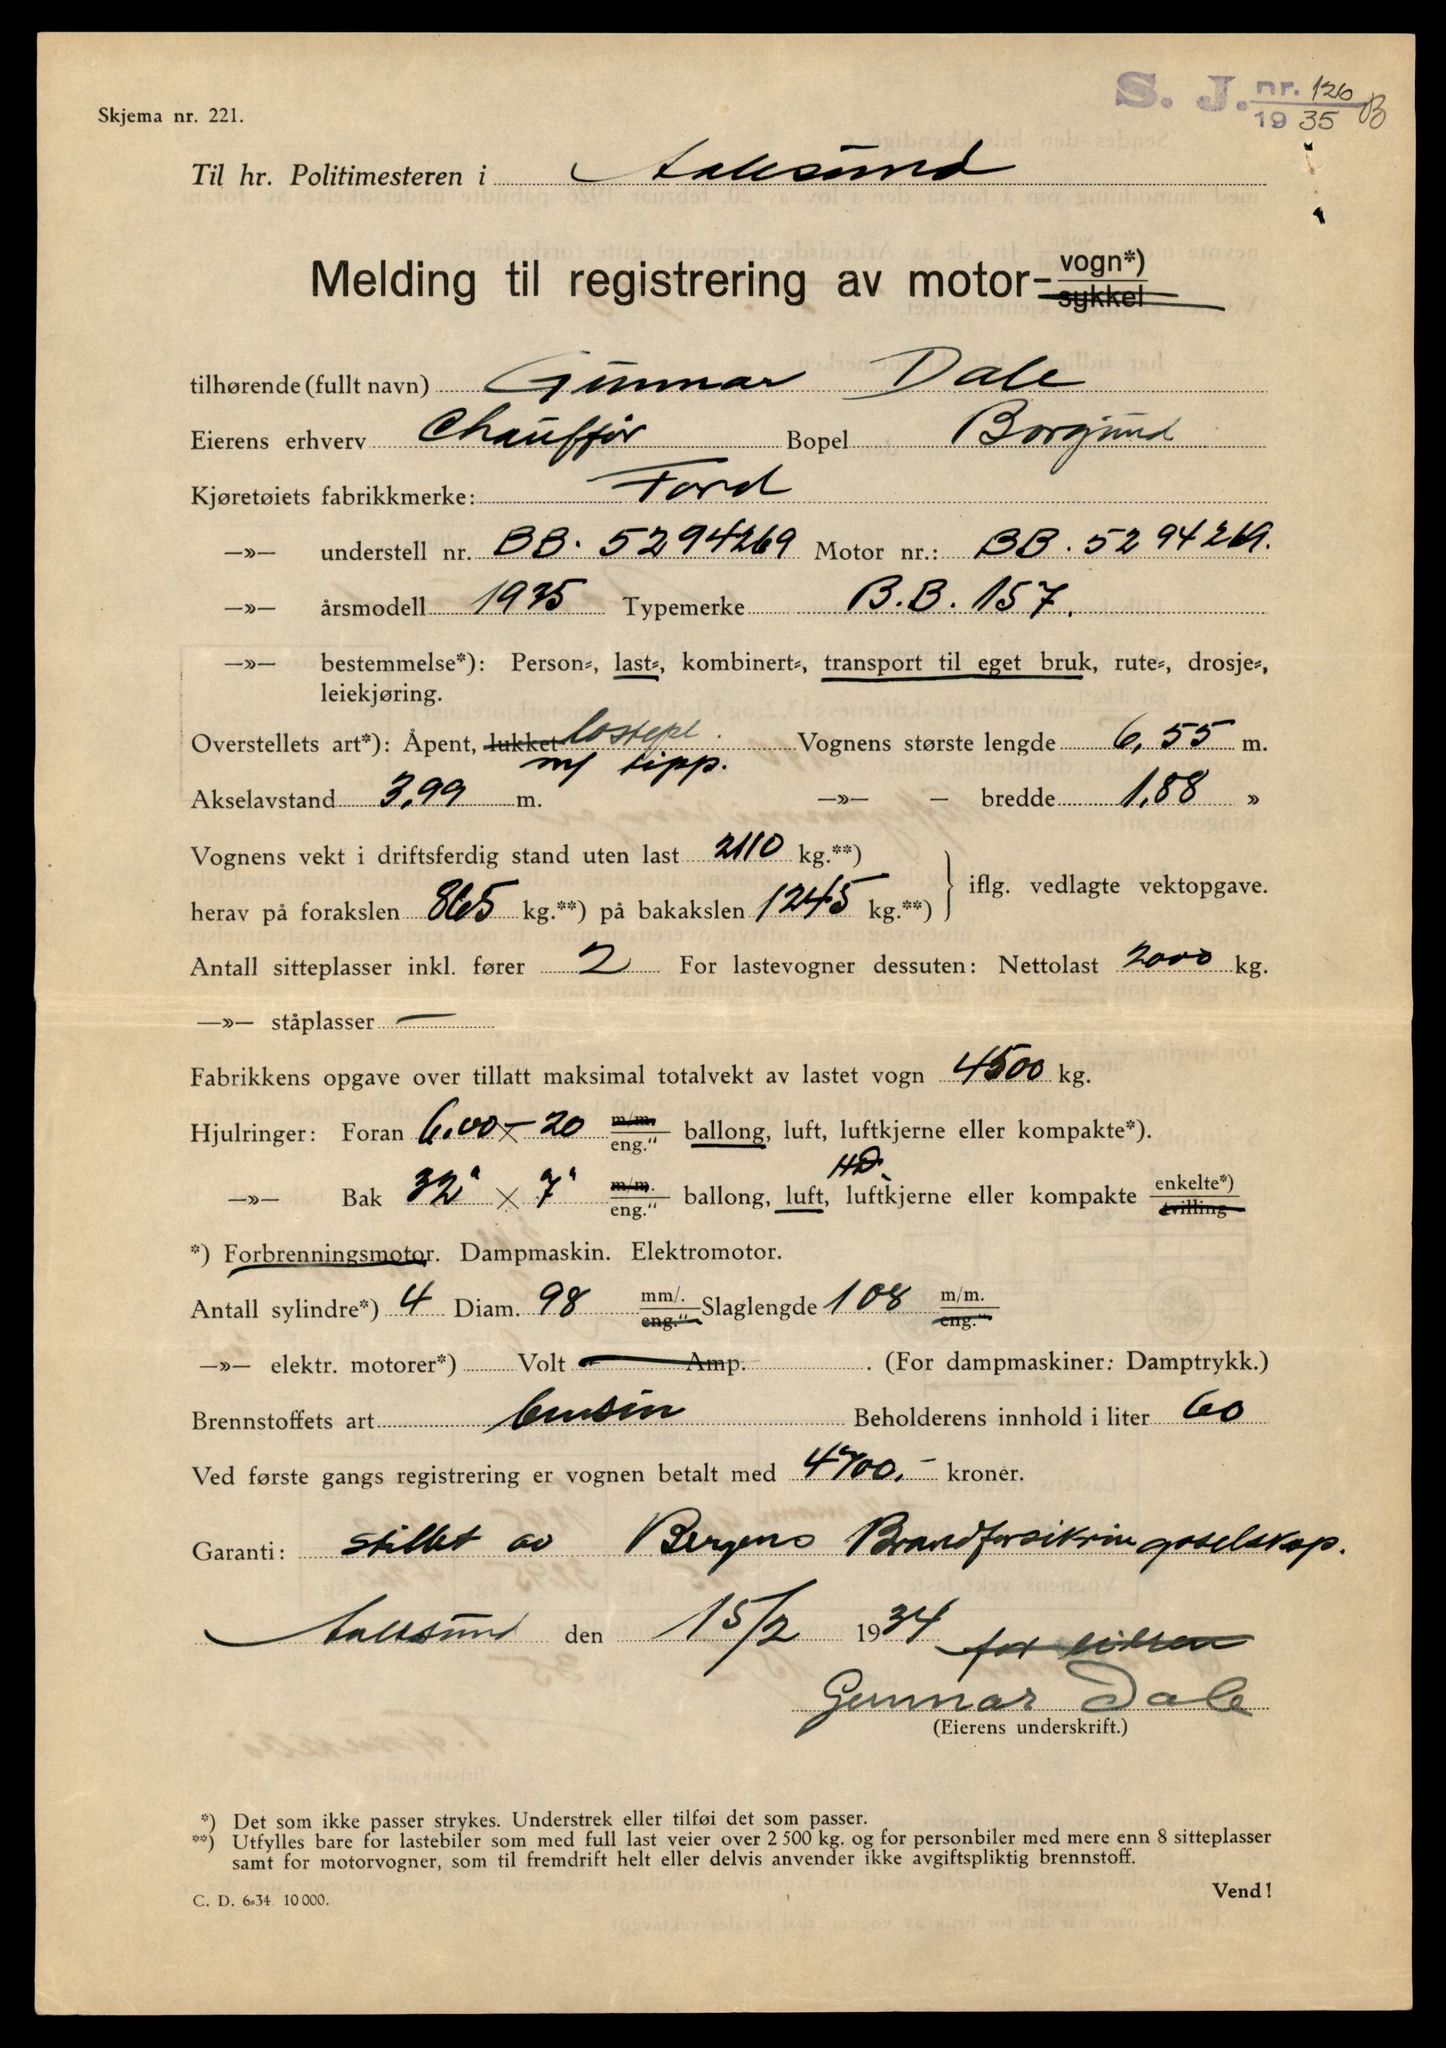 S. J. nr. 126 B
1935
Skjema nr. 221.
Til hr. Politimesteren i Aalesund
Melding til registrering av motor-vogn*)
sykkel
tilhørende (fullt navn) Gunnar Dale
Eierens erhverv Chauffør Bopel Borgund
Kjøretøiets fabrikkmerke: Ford
—»— understell nr. BB. 5294269 Motor nr.: BB. 5294269.
—»— årsmodell 1935 Typemerke B.B. 157.
—»— bestemmelse*): Person-, last-, kombinert-, transport til eget bruk, rute-, drosje-,
leiekjøring.
Overstellets art*): Åpent, lukket lastepl. Vognens største lengde 6,55 m.
m/ tipp.
Akselavstand 3,99 m. —»— — bredde 1,88 »
Vognens vekt i driftsferdig stand uten last 2110 kg.**)
herav på forakslen 865 kg.**) på bakakslen 1245 kg.**) } iflg. vedlagte vektopgave.
Antall sitteplasser inkl. fører 2 For lastevogner dessuten: Nettolast 2000 kg.
—»— ståplasser —
Fabrikkens opgave over tillatt maksimal totalvekt av lastet vogn 4500 kg.
Hjulringer: Foran 6.00 × – 20 m/m. eng." ballong, luft, luftkjerne eller kompakte*).
HD.
—»— Bak 32" × 7" m/m. eng." ballong, luft, luftkjerne eller kompakte enkelte*) tvilling
*) Forbrenningsmotor. Dampmaskin. Elektromotor.
Antall sylindre*) 4 Diam. 98 mm/. eng." Slaglengde 108 m/m. eng."
—»— elektr. motorer*) Volt — Amp. . (For dampmaskiner: Damptrykk.)
Brennstoffets art bensin Beholderens innhold i liter 60
Ved første gangs registrering er vognen betalt med 4700.– kroner.
Garanti: stillet av Bergens Brandforsikringsselskap.
Aalesund den 15/2 1934 for eieren
Gunnar Dale
(Eierens underskrift.)
*) Det som ikke passer strykes. Understrek eller tilføi det som passer.
**) Utfylles bare for lastebiler som med full last veier over 2 500 kg. og for personbiler med mere enn 8 sitteplasser
samt for motorvogner, som til fremdrift helt eller delvis anvender ikke avgiftspliktig brennstoff.
C. D. 6-34 10 000.
Vend!